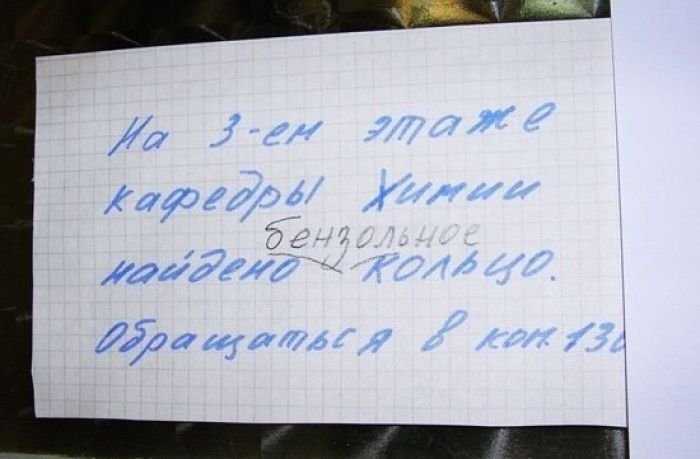 На 3-ем этаже
кафедры Химии
бензольное
найдено кольцо.
Обращаться в ком.